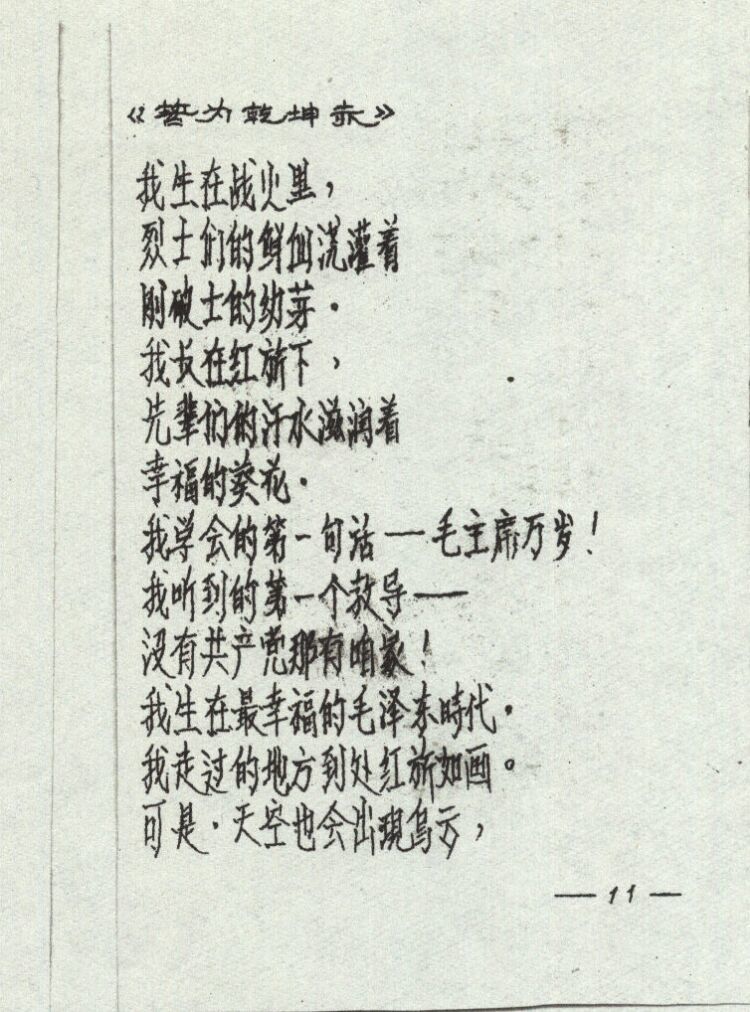 《誓为乾坤赤》
我生在战火里，
烈士们的鲜血浇灌着
刚破土的幼芽．
我长在红旗下，
先辈们的汗水滋润着
幸福的葵花．
我学会的第一句话——毛主席万岁！
我听到的第一个教导——
没有共产党那有咱家！
我生在最幸福的毛泽东時代．
我走过的地方到处红旗如画。
可是．天空也会出現乌云，
— 11 —